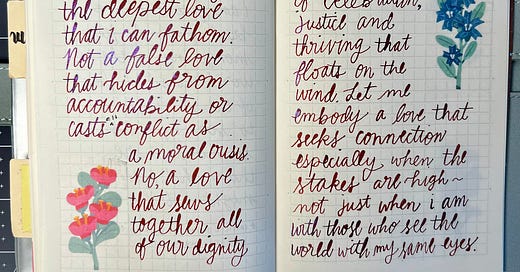 the deepest love
that i can fathom.
Not a false love
that hides from
accountability or
casts conflict as
a moral crisis.
No, a love
that sews
together all
of our dignity
of celebration,
Justice and
thriving that
floats on the
wind. Let me
embody a love that
seeks connection
especially when the
stakes are ~high~
not just when i am
with those who see the
world with my same eyes.